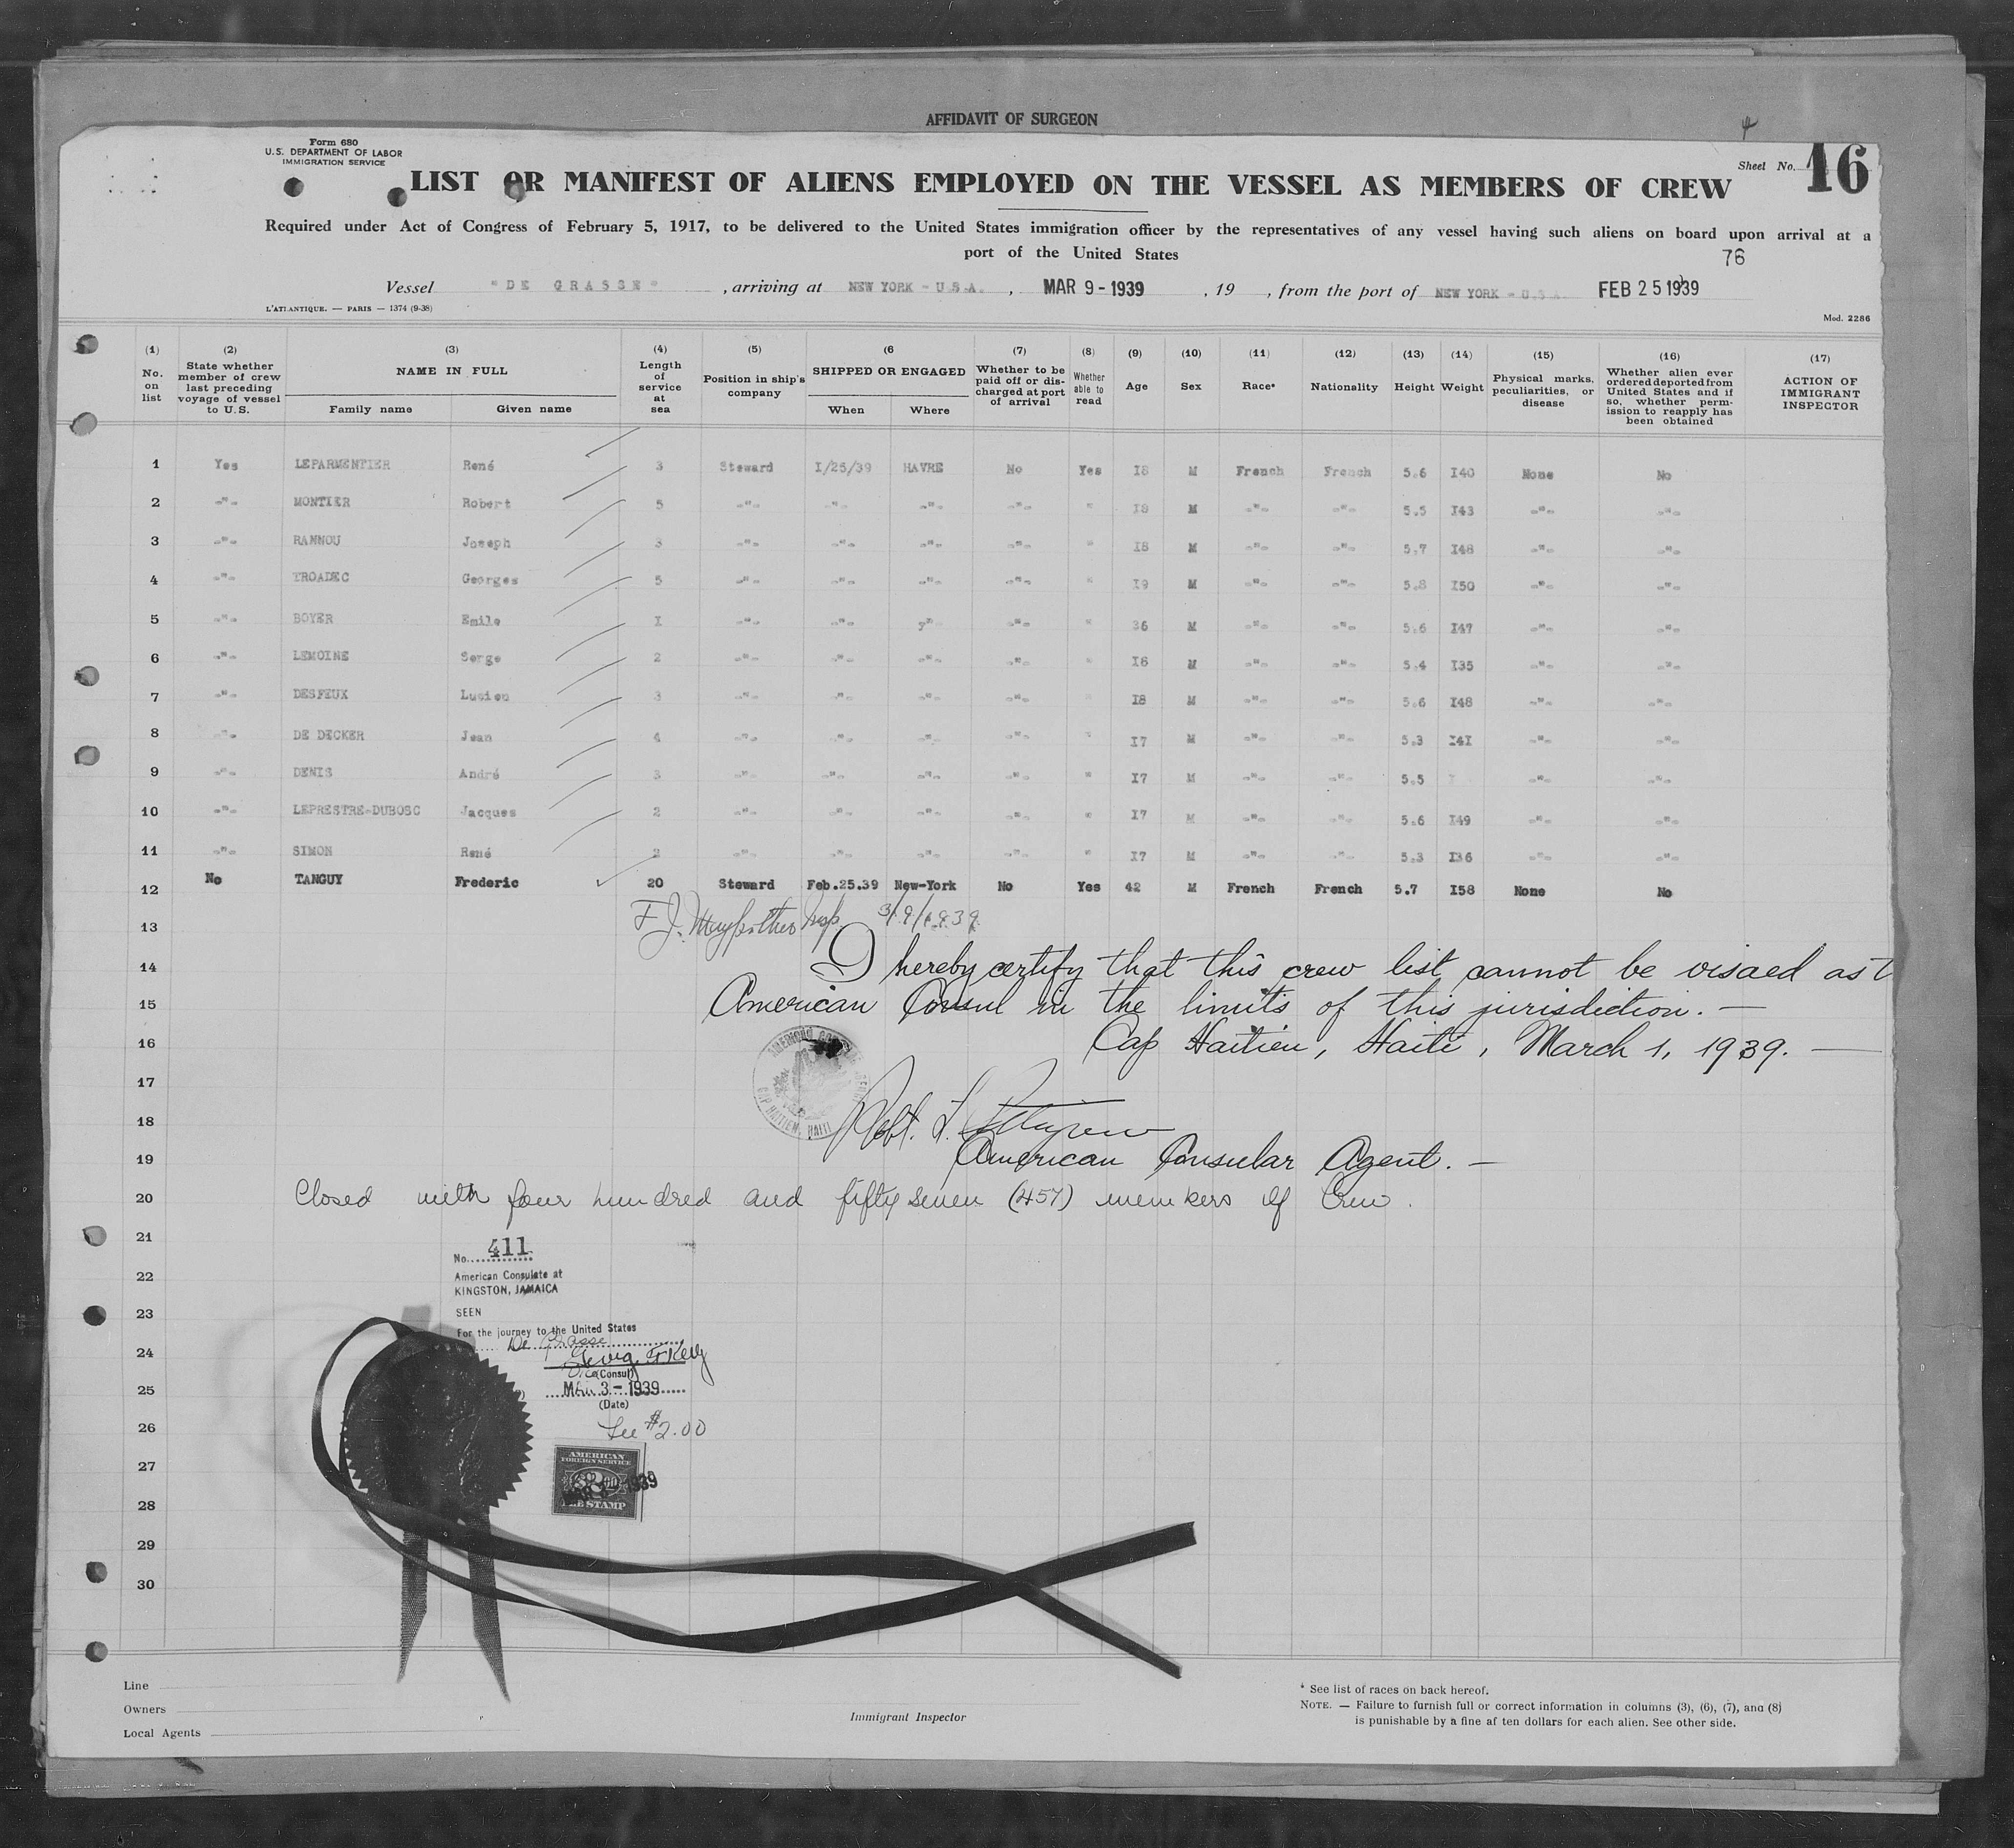 AFFIDAVIT OF SURGEON
Form 680
U.S. DEPARTMENT OF LABOR
IMMIGRATION SERVICE
Sheet No. 16
LIST OR MANIFEST OF ALIENS EMPLOYED ON THE VESSEL AS MEMBERS OF CREW
Required under Act of Congress of February 5, 1917, to be delivered to the United States immigration officer by the representatives of any vessel having such aliens on board upon arrival at a
port of the United States
76
Vessel "DE GRASSE", arriving at NEW YORK - U.S.A., MAR 9 - 1939, 19 , from the port of NEW YORK - U.S.A. FEB 25 1939
L'ATLANTIQUE. — PARIS — 1374 (9-38)
Mod. 2286
(1) No. on list
(2) State whether member of crew last preceding voyage of vessel to U.S.
(3) NAME IN FULL Family name Given name
(4) Length of service at sea
(5) Position in ship's company
(6 SHIPPED OR ENGAGED When Where
(7) Whether to be paid off or discharged at port of arrival
(8) Whether able to read
(9) Age
(10) Sex
(11) Race*
(12) Nationality
(13) Height
(14) Weight
(15) Physical marks, peculiarities, or disease
(16) Whether alien ever ordered deported from United States and if so, whether permission to reapply has been obtained
(17) ACTION OF IMMIGRANT INSPECTOR
1 Yes LEPARMENTIER René 3 Steward I/25/39 HAVRE No Yes I8 M French French 5.6 I40 None No
2 -"- MONTIER Robert 5 -"- -"- -"- -"- " I8 M -"- -"- 5.5 I43 -"- -"-
3 -"- RANNOU Joseph 3 -"- -"- -"- -"- " I8 M -"- -"- 5.7 I48 -"- -"-
4 -"- TROADEC Georges 5 -"- -"- -"- -"- " I9 M -"- -"- 5.8 I50 -"- -"-
5 -"- BOYER Emile I -"- -"- -"- -"- " 36 M -"- -"- 5.6 I47 -"- -"-
6 -"- LEMOINE Serge 2 -"- -"- -"- -"- " I6 M -"- -"- 5.4 I35 -"- -"-
7 -"- DESFEUX Lucien 3 -"- -"- -"- -"- " I8 M -"- -"- 5.6 I48 -"- -"-
8 -"- DE DECKER Jean 4 -"- -"- -"- -"- " I7 M -"- -"- 5.3 I4I -"- -"-
9 -"- DENIS André 3 -"- -"- -"- -"- " I7 M -"- -"- 5.5 -"- -"-
10 -"- LEPRESTRE-DUBOSC Jacques 2 -"- -"- -"- -"- " I7 M -"- -"- 5.6 I49 -"- -"-
11 -"- SIMON René 2 -"- -"- -"- -"- " I7 M -"- -"- 5.3 I36 -"- -"-
12 No TANGUY Frederic 20 Steward Feb.25.39 New-York No Yes 42 M French French 5.7 I58 None No
13 F. J. Insp 3/9/1939
14 I hereby certify that this crew list cannot be visaed as
15 American Consul in the limits of this jurisdiction. —
16 Cap Haitien, Haiti, March 1, 1939. —
17
AMERICAN CONSULAR AGENCY
CAP HAITIEN, HAITI
18 Robt. L.
19 American Consular Agent. —
20 Closed with four hundred and fifty seven (457) members of Crew.
21
No. 411
22 American Consulate at
KINGSTON, JAMAICA
23 SEEN
For the journey to the United States
24 De Grasse
George F Kelly
Vice (Consul)
25 MAR 3 - 1939
(Date)
26 Fee $2.00
27 AMERICAN
FOREIGN SERVICE
1939
28 FEE STAMP
29
30
Line
Owners
Local Agents
Immigrant Inspector
* See list of races on back hereof.
NOTE. — Failure to furnish full or correct information in columns (3), (6), (7), and (8)
is punishable by a fine af ten dollars for each alien. See other side.